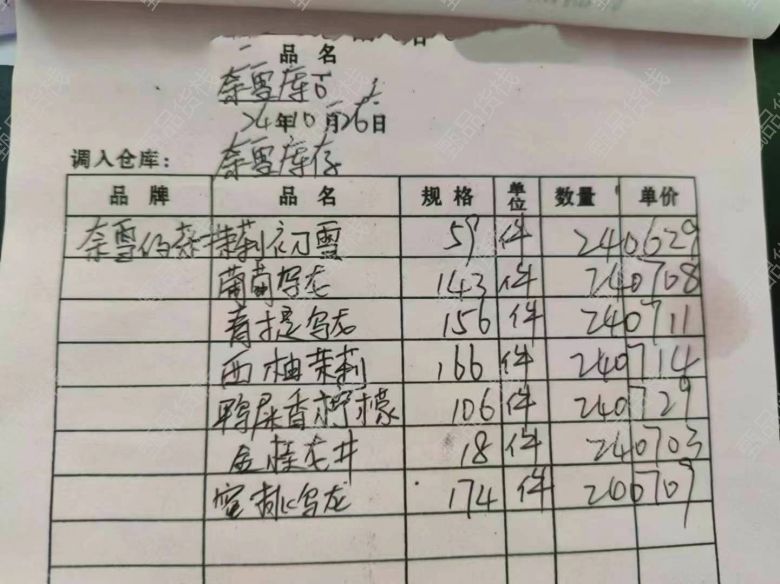 品 名
奈雪库存
24年10月26日
调入仓库： 奈雪库存
品 牌 品 名 规 格 单位 数量 单价
奈雪的茶 茉莉初雪 59 件 240629
葡萄乌龙 143 件 240708
青提乌龙 156 件 240711
西柚茉莉 166 件 240714
鸭屎香柠檬 106 件 240729
金桂龙井 18 件 240703
蜜桃乌龙 174 件 240709